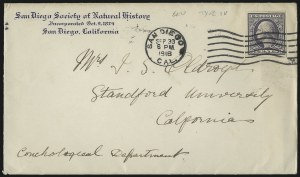 San Diego Society of Natural History
Incorporated Oct. 6, 1874
San Diego, California
SAN DIEGO
SEP 30
6 PM
1918
CAL.
Mrs I. S. Oldroyd
Standford University
Calfornias
Conchological Department